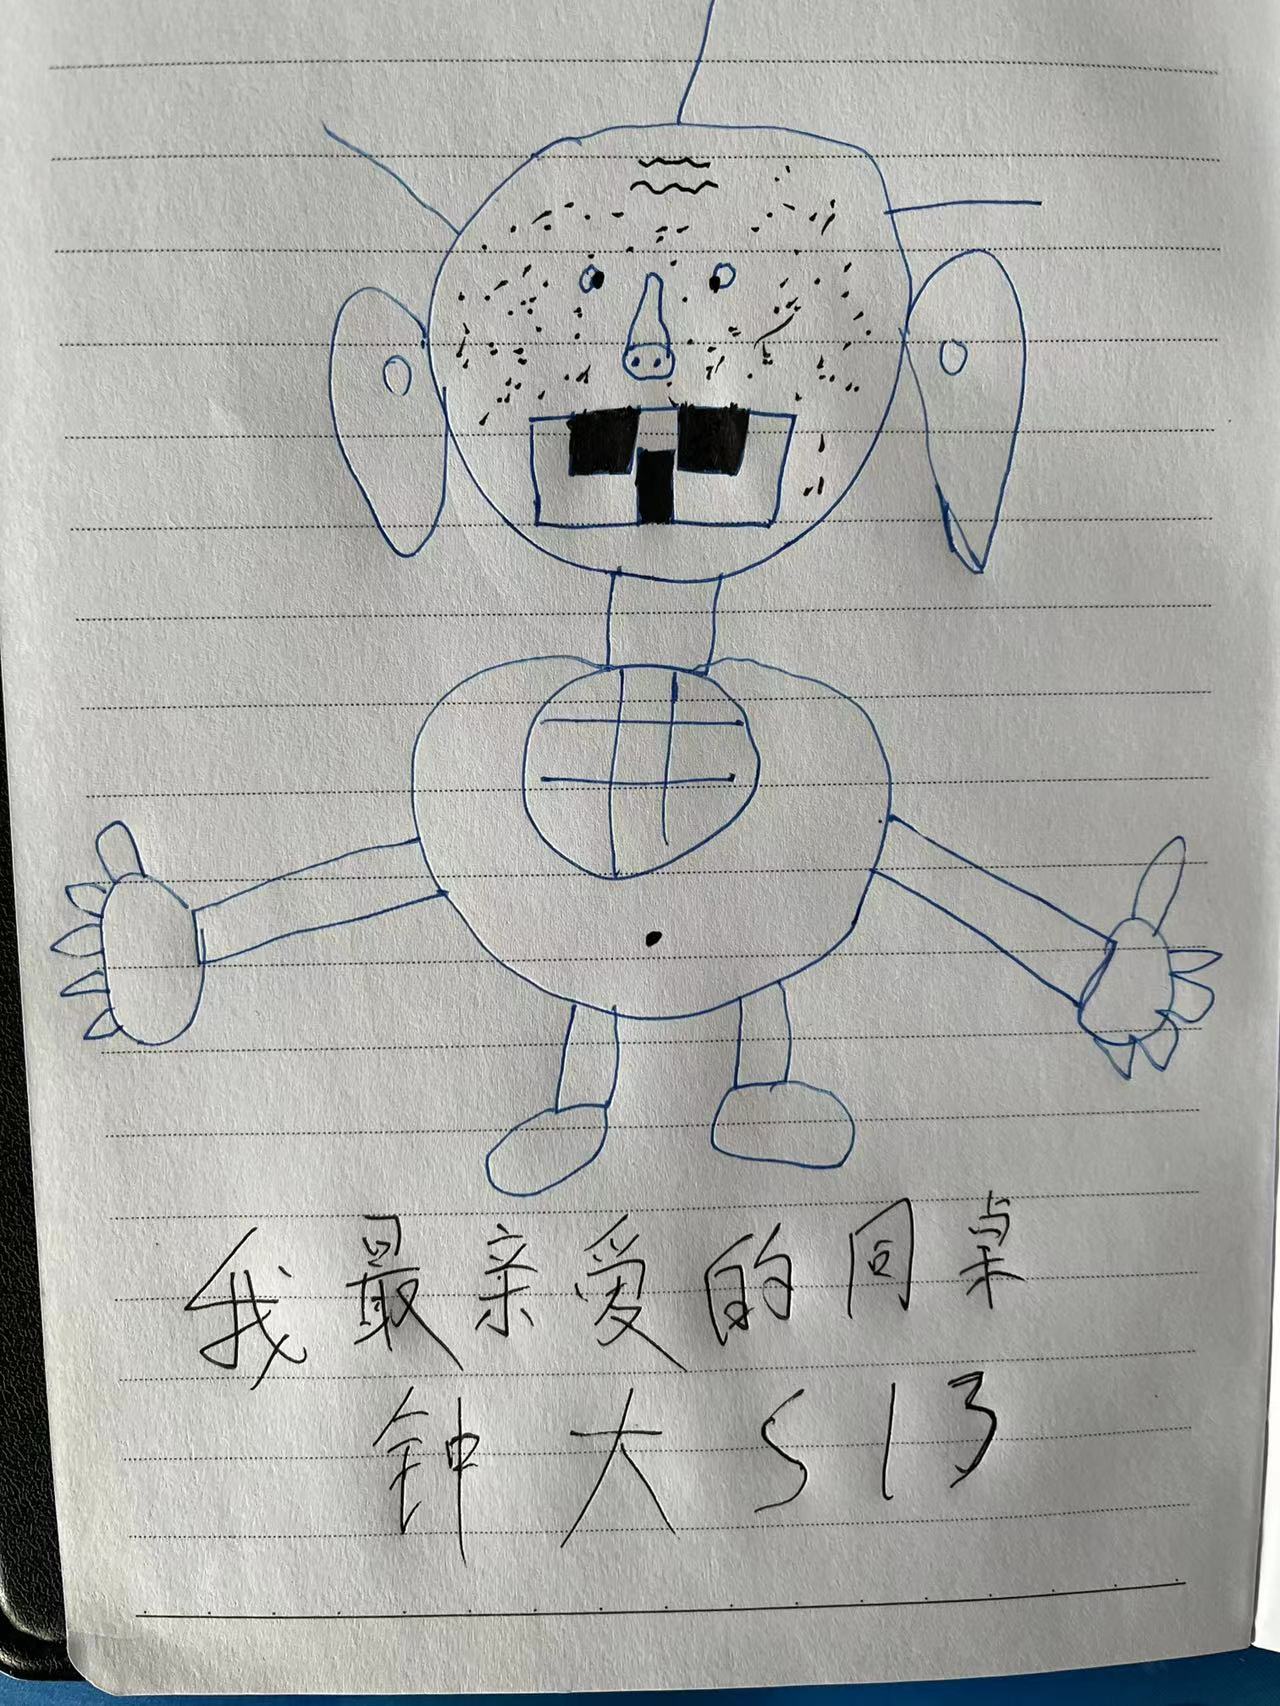 我最亲爱的同桌
钟大S13